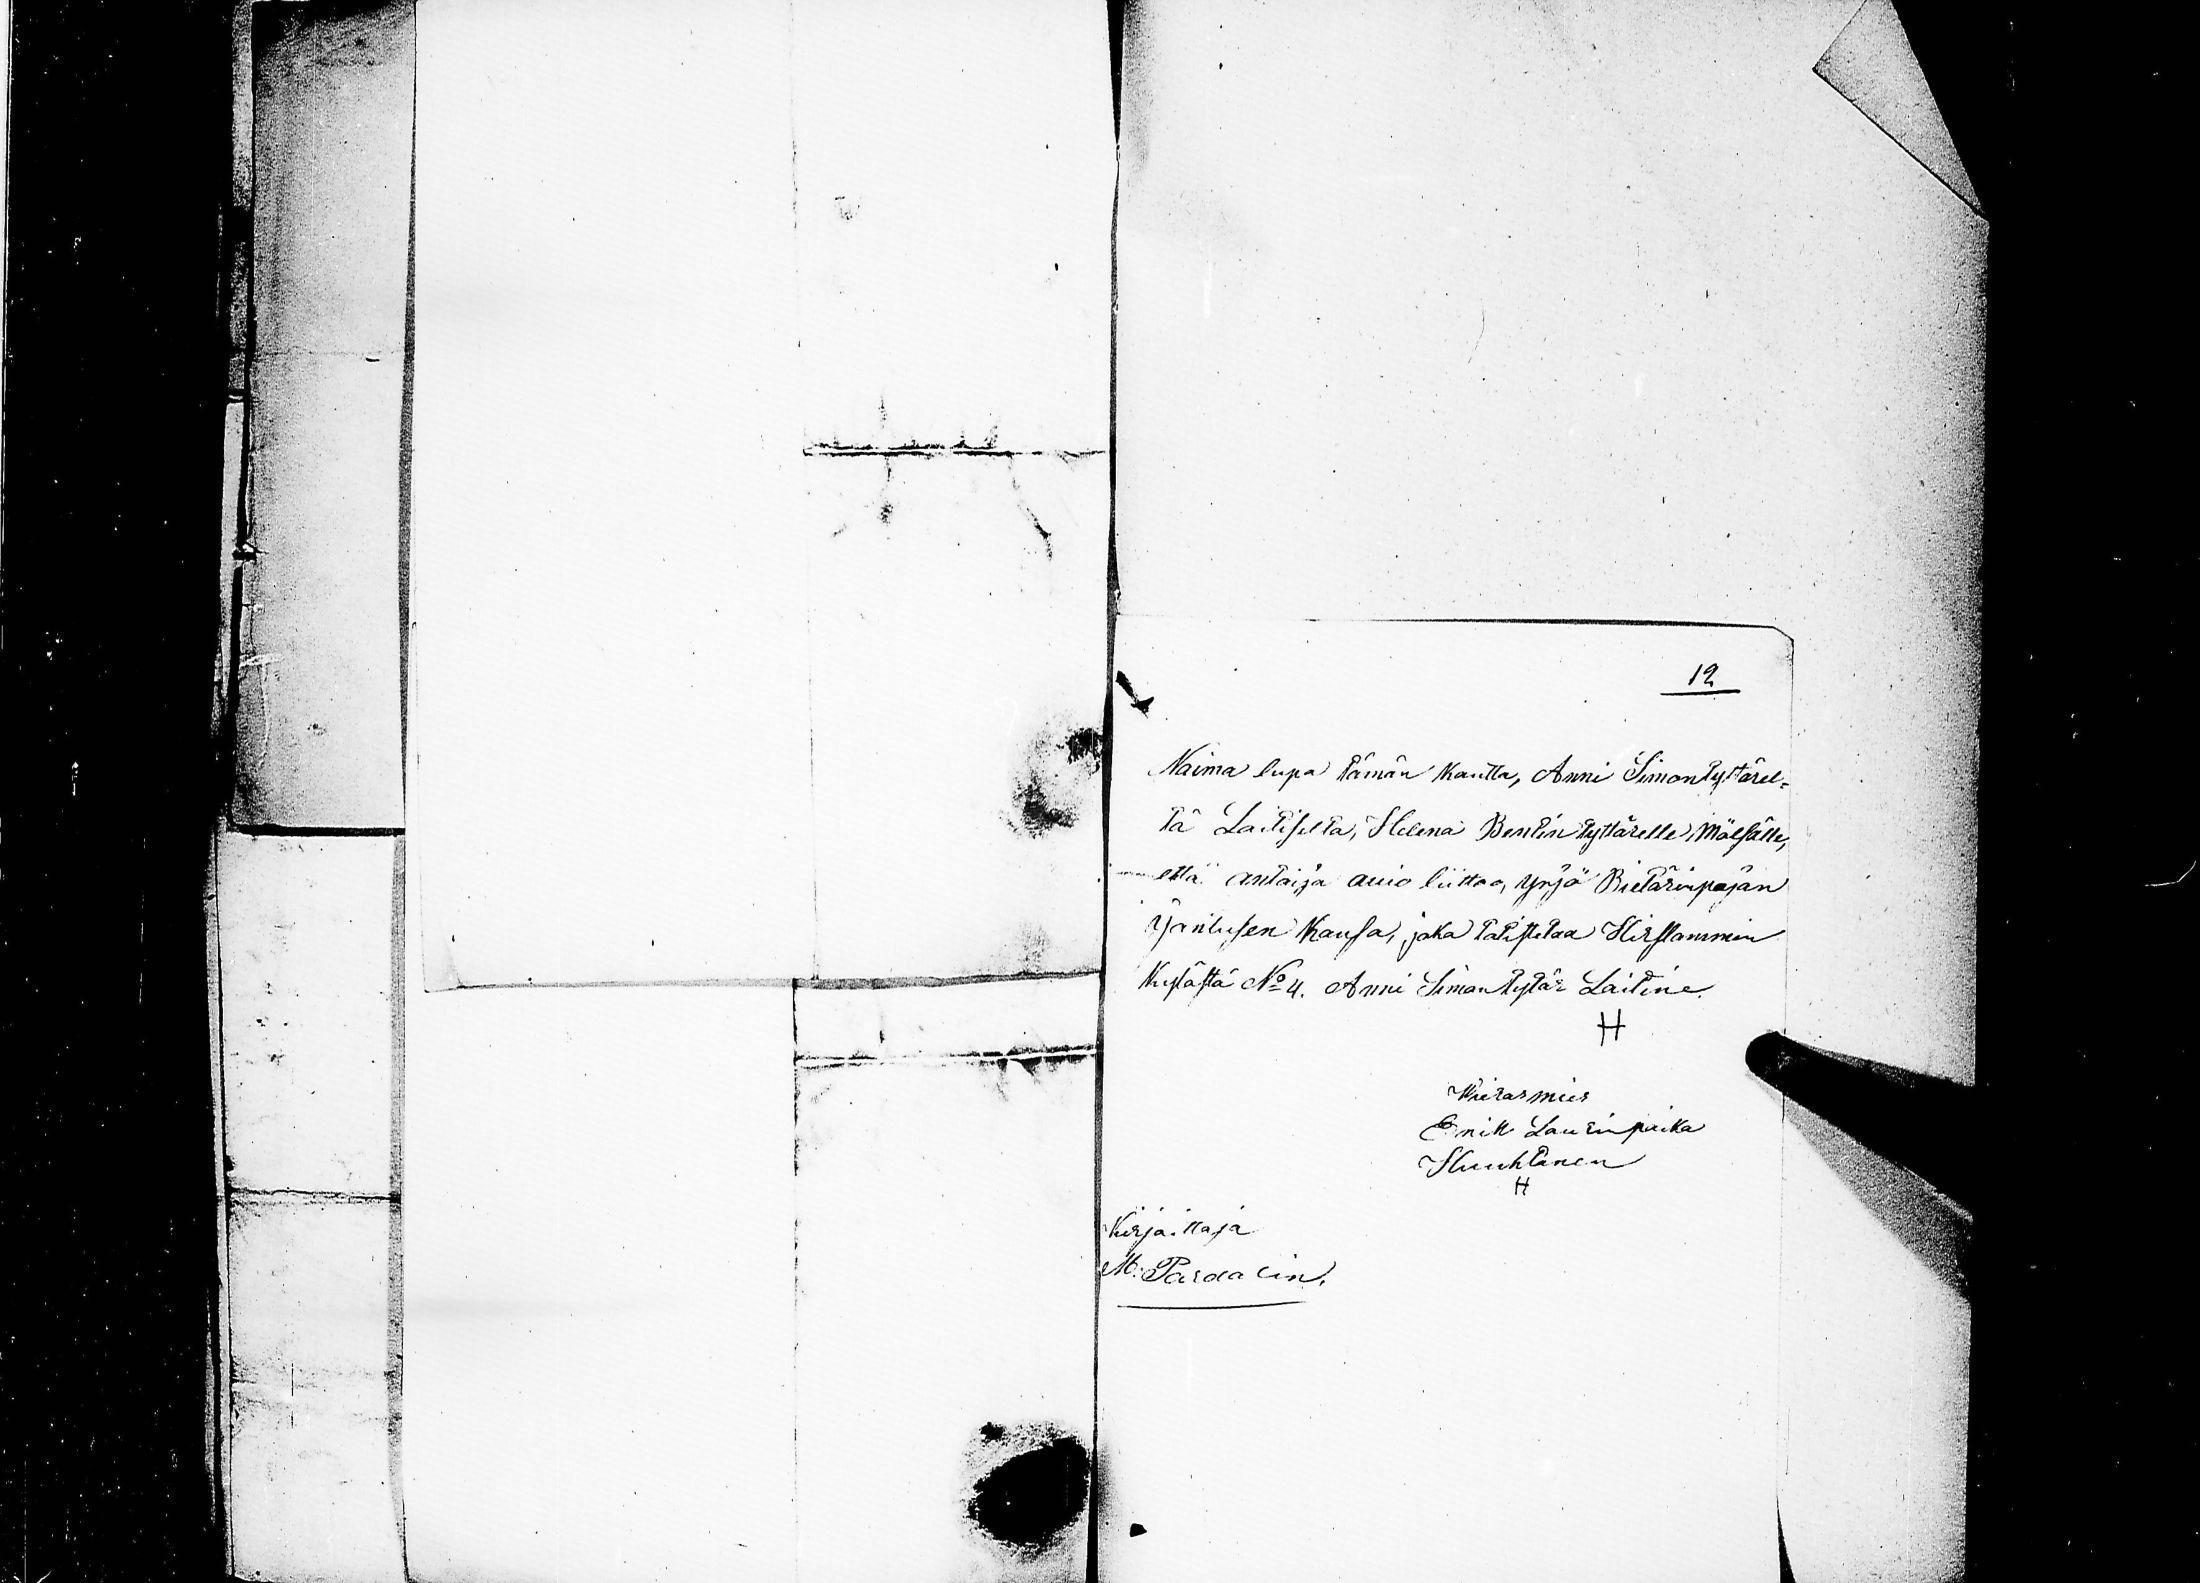 12
Naima lupa tämän kautta, Anni Simontyttärel=
tä Laitiselta, Helena Bentin tyttärelle Mölsälle,
että antaija avio liittoo, Yrjö Pietärinpojan
Jäntusen kansa, joka totistetaa Hirslammin
kylästä No 4. Anni Simon tytär Laitine.
H
Vierasmies
Erik Laurinpoika
Huuhtanen
H
Kirjoittaja
M. Pardalin.